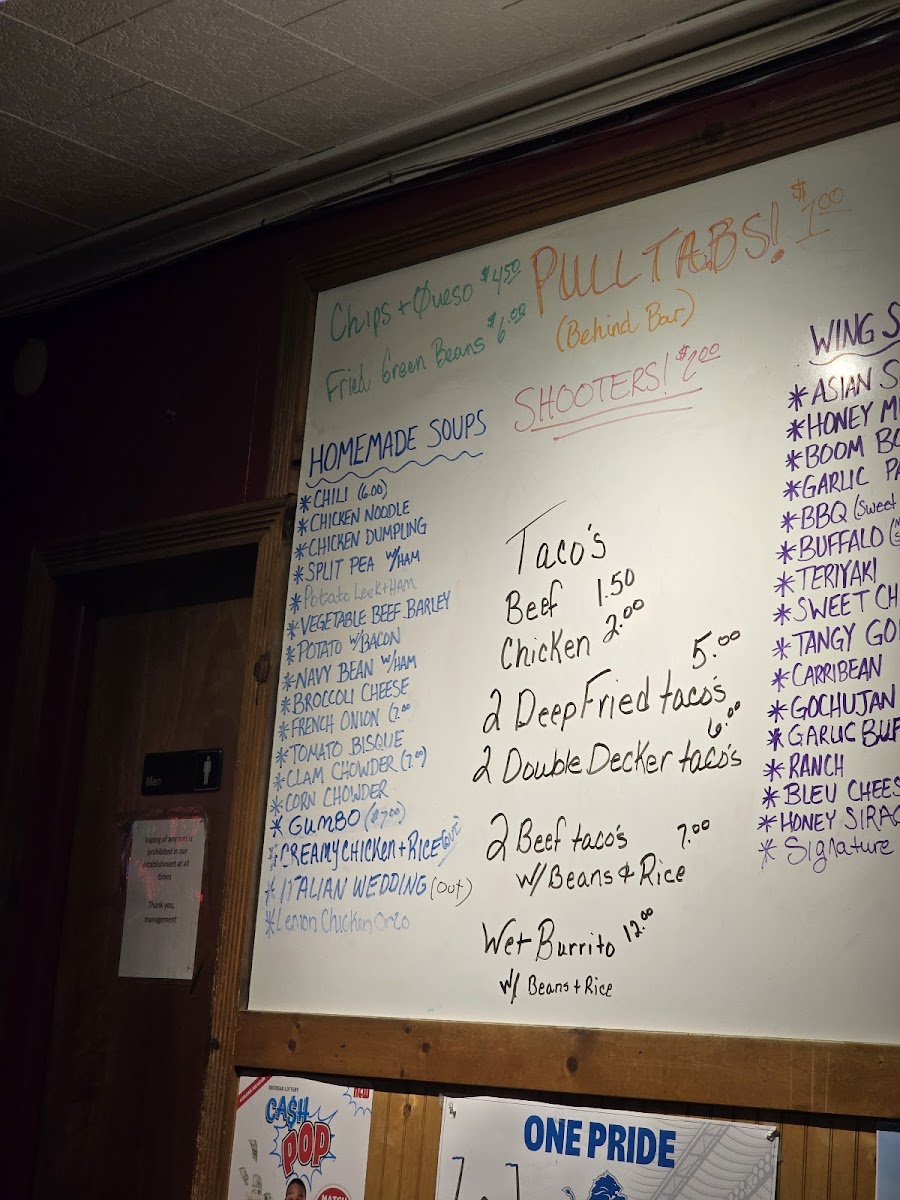 Chips + Queso $4.50
Fried Green Beans $6.00
PULLTABS! $1.00
(Behind Bar)
SHOOTERS! $2.00
HOMEMADE SOUPS
*CHILI (6.00)
*CHICKEN NOODLE
*CHICKEN DUMPLING
*SPLIT PEA W/HAM
*Potato Leek+HAM
*VEGETABLE BEEF BARLEY
*POTATO W/BACON
*NAVY BEAN W/HAM
*BROCCOLI CHEESE
*FRENCH ONION (7.00
*TOMATO BISQUE
*CLAM CHOWDER (7.00)
*CORN CHOWDER
*GUMBO ($7.00)
*CREAMY CHICKEN+RICE (out)
*ITALIAN WEDDING (out)
*Lemon Chicken Orzo
Taco's
Beef 1.50
Chicken 2.00
2 Deep Fried taco's 5.00
2 Double Decker taco's 6.00
2 Beef taco's 7.00
W/ Beans & Rice
Wet Burrito 12.00
W/ Beans + Rice
WING S
*ASIAN S
*HONEY M
*BOOM BO
*GARLIC PA
*BBQ (Sweet
*BUFFALO (
*TERIYAKI
*SWEET CH
*TANGY GO
*CARRIBEAN
*GOCHUJAN
*GARLIC BUF
*RANCH
*BLEU CHEES
*HONEY SIRAC
*Signature
Men
Vaping of any sort is
prohibited in our
establishment at all
times
Thank you,
management
MICHIGAN LOTTERY
NEW
CA$H
POP
MATCH
ONE PRIDE